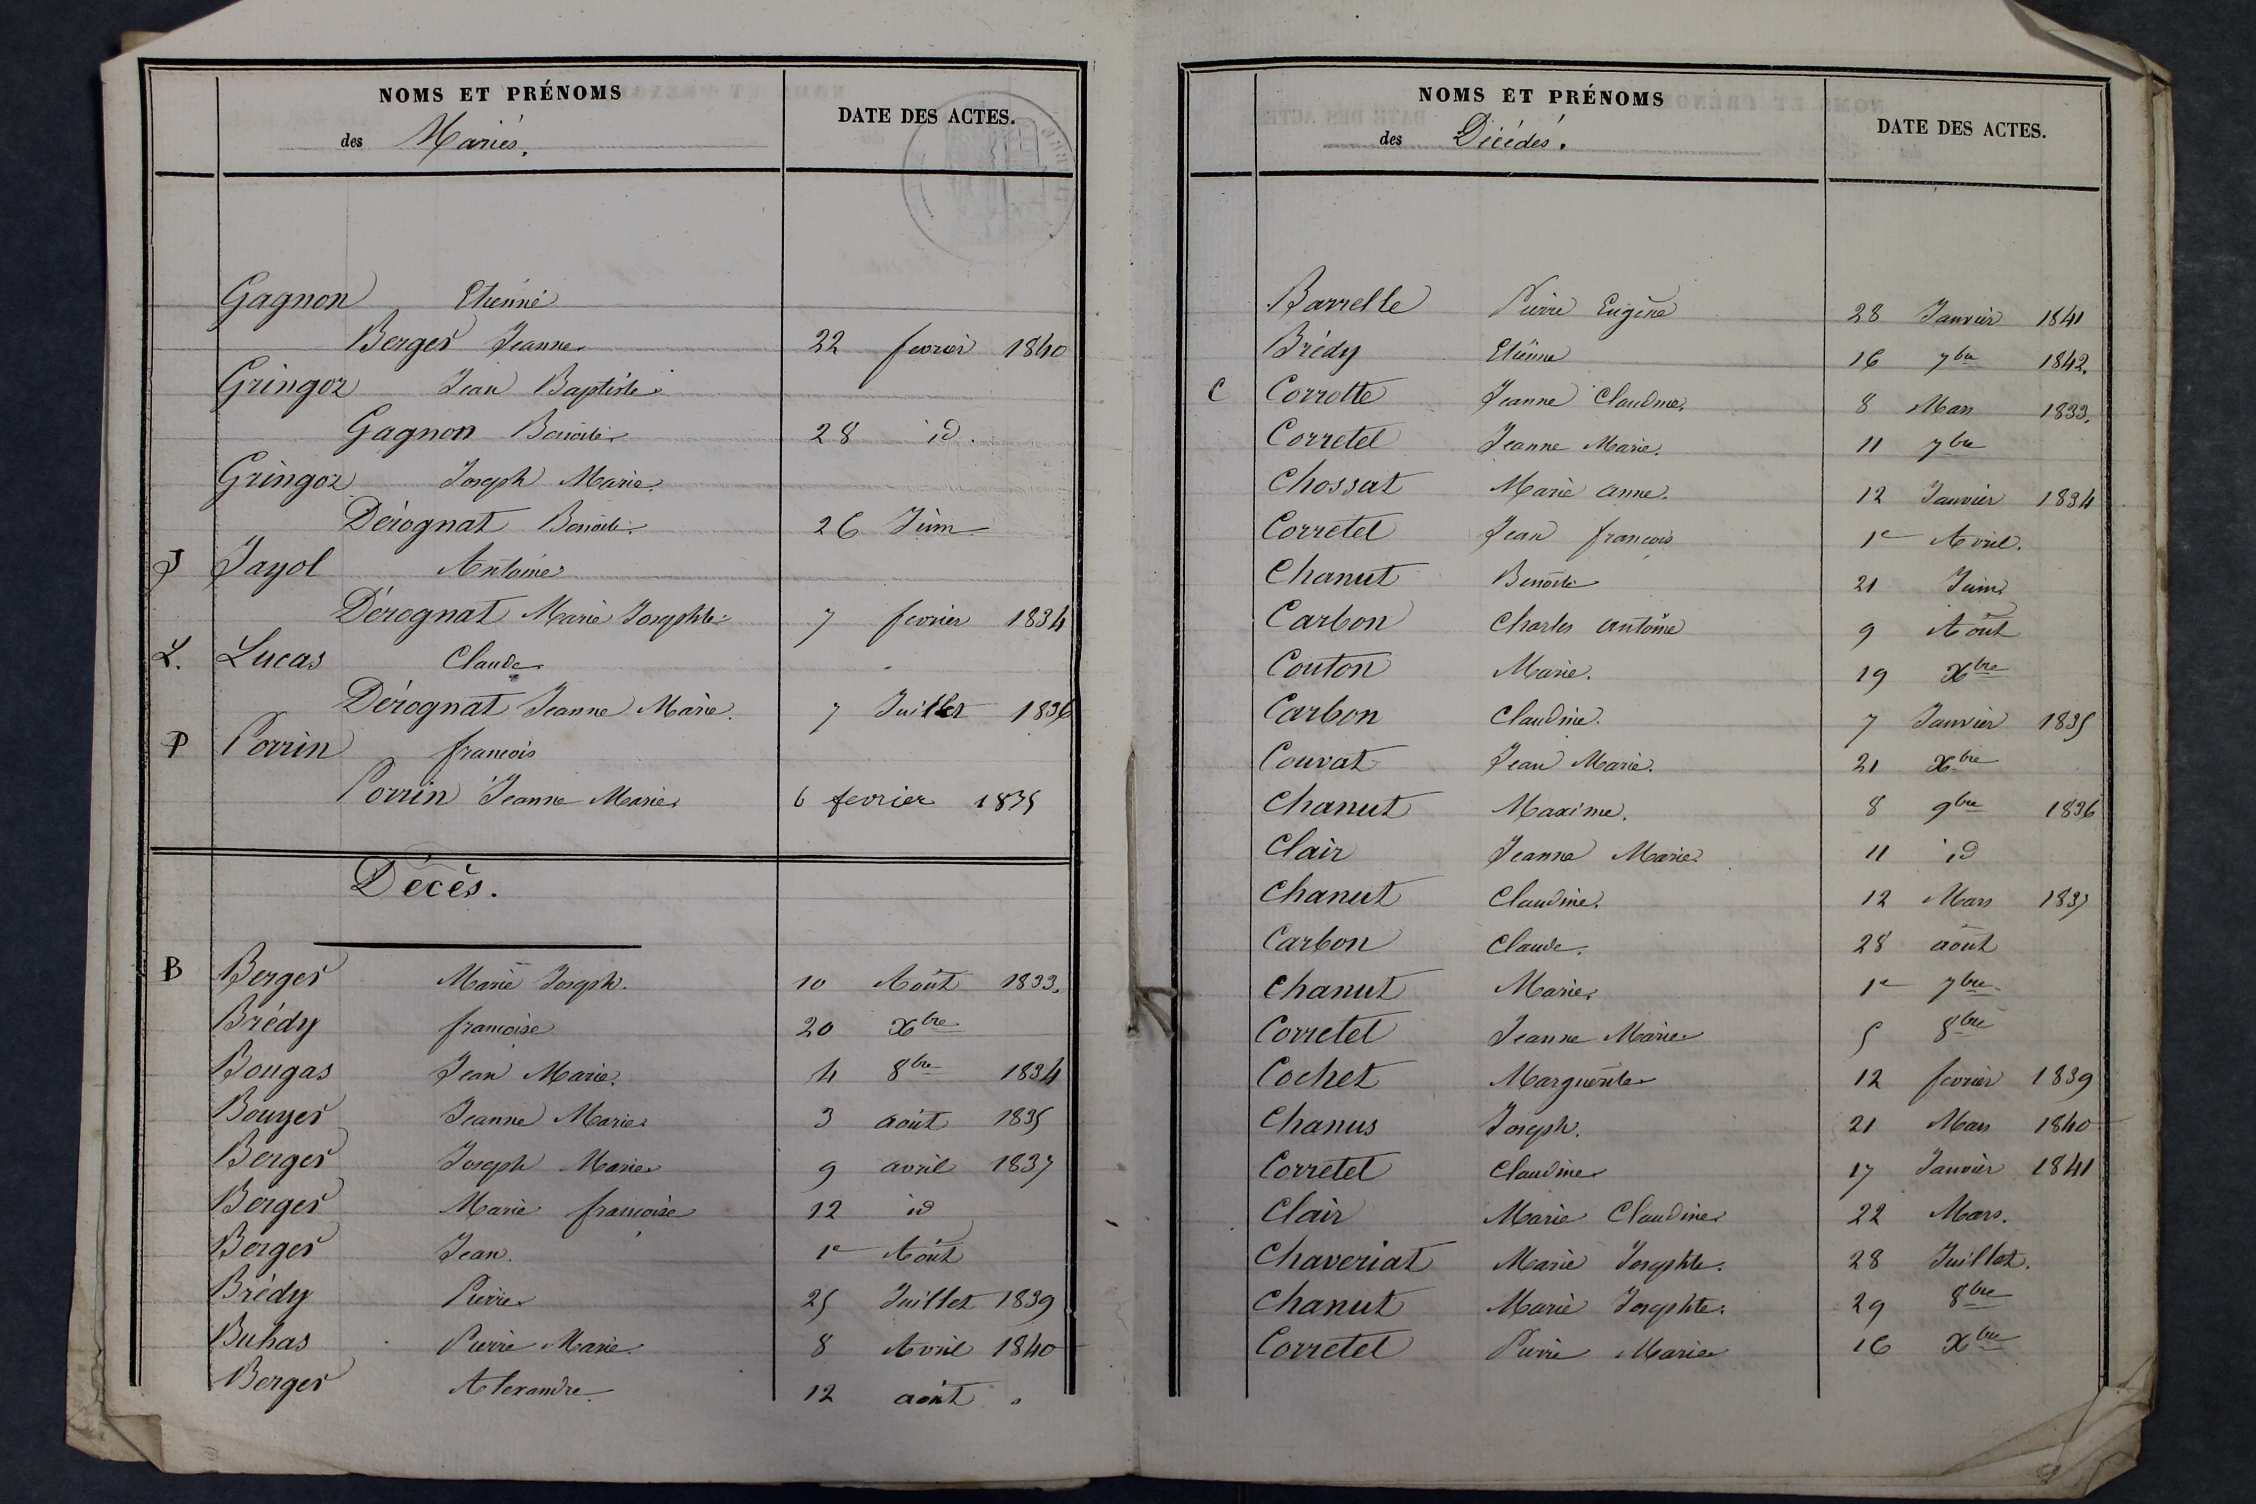 NOMS ET PRÉNOMS
des Mariés.
DATE DES ACTES.
Gagnon Etienne
Berger Jeanne 22 fevrier 1840
Gringoz Jean Baptiste
Gagnon Benoite 28 id.
Gringoz Joseph Marie
Dérognat Benoite 26 Juin
J Jayol Antoine
Dérognat Marie Josephte 7 fevrier 1834
L. Lucas Claude
Dérognat Jeanne Marie. 7 Juillet 1836
P Porrin francois
Porrin Jeanne Marie 6 fevrier 1835
Décès.
B Berger Marie Joseph. 10 Août 1833.
Brédy francoise 20 Xbre
Bougas Jean Marie. 4 8bre 1834
Bouyer Jeanne Marie 3 août 1835
Berger Joseph Marie 9 avril 1837
Berger Marie francoise 12 id
Berger Jean. 1er Août
Brédy Pierre 25 Juillet 1839
Buhas Pierre Marie 8 Avril 1840
Berger Alexandre 12 août
NOMS ET PRÉNOMS
des Décédés.
DATE DES ACTES.
Barrelle Pierre Eugène 28 Janvier 1841
Brédy Etienne 16 7bre 1842.
C Corrotte Jeanne Claudine. 8 Mars 1833.
Corretel Jeanne Marie. 11 7bre
Chossat Marie anne. 12 Janvier 1834
Corretel Jean francois 1er Avril.
Chanut Benoite 21 Juin
Carbon Charles antoine 9 Août
Couton Marie. 19 Xbre
Carbon Claudine. 7 Janvier 1835
Couvat Jean Marie. 21 Xbre
Chanut Maxime. 8 9bre 1836
Clair Jeanne Marie 11 id
Chanut Claudine. 12 Mars 1837
Carbon Claude. 28 août
Chanut Marie 1er 7bre
Corretel Jeanne Marie 5 8bre
Cochet Marguerite 12 fevrier 1839
Chanus Joseph. 21 Mars 1840
Corretel Claudine 17 Janvier 1841
Clair Marie Claudine 22 Mars.
Chaveriat Marie Josephte. 28 Juillet.
Chanut Marie Josephte. 29 8bre
Corretel Pierre Marie 16 Xbre